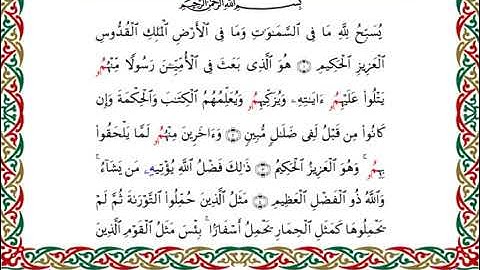 بِسْمِ اللَّهِ الرَّحْمَٰنِ الرَّحِيمِ
يُسَبِّحُ لِلَّهِ مَا فِى ٱلسَّمَٰوَٰتِ وَمَا فِى ٱلْأَرْضِ ٱلْمَلِكِ ٱلْقُدُّوسِ
ٱلْعَزِيزِ ٱلْحَكِيمِ ۝١ هُوَ ٱلَّذِى بَعَثَ فِى ٱلْأُمِّيِّـۧنَ رَسُولًا مِّنْهُمُۥ
يَتْلُوا۟ عَلَيْهِمُۥ ءَايَٰتِهِۦ وَيُزَكِّيهِمُۥ وَيُعَلِّمُهُمُ ٱلْكِتَٰبَ وَٱلْحِكْمَةَ وَإِن
كَانُوا۟ مِن قَبْلُ لَفِى ضَلَٰلٍ مُّبِينٍ ۝٢ وَءَاخَرِينَ مِنْهُمُۥ لَمَّا يَلْحَقُوا۟
بِهِمُۥ ۚ وَهُوَ ٱلْعَزِيزُ ٱلْحَكِيمُ ۝٣ ذَٰلِكَ فَضْلُ ٱللَّهِ يُؤْتِيهِۦ مَن يَشَآءُ ۚ
وَٱللَّهُ ذُو ٱلْفَضْلِ ٱلْعَظِيمِ ۝٤ مَثَلُ ٱلَّذِينَ حُمِّلُوا۟ ٱلتَّوْرَىٰةَ ثُمَّ لَمْ
يَحْمِلُوهَا كَمَثَلِ ٱلْحِمَارِ يَحْمِلُ أَسْفَارًۢا ۚ بِئْسَ مَثَلُ ٱلْقَوْمِ ٱلَّذِينَ